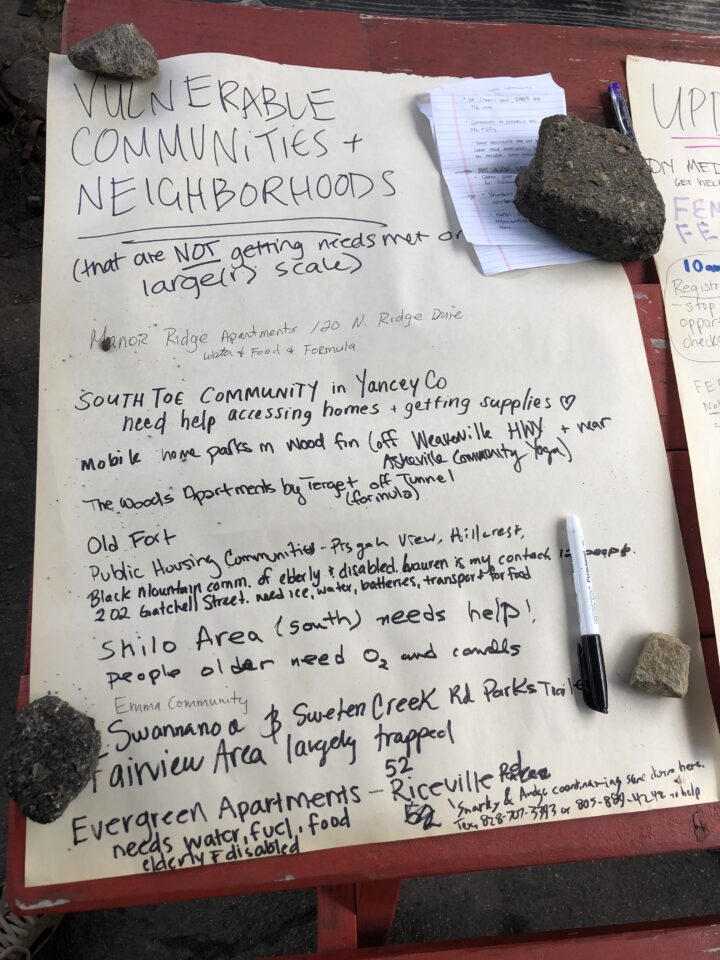 VULNERABLE
COMMUNITIES +
NEIGHBORHOODS
(that are NOT getting needs met on
large(r) scale)
Manor Ridge Apartments 120 N. Ridge Drive
water & Food & Formula
SOUTH TOE COMMUNITY in Yancey Co
need help accessing homes + getting supplies ♡
Mobile home parks in Wood fin (off Weaverville HWY + near
Asheville Community Yoga)
The Woods Apartments by Target off Tunnel
(formula)
Old Fort
Public Housing Communities - Pisgah View, Hillcrest,
Black Mountain comm. of elderly & disabled. Lauren is my contact 12 people.
202 Gatchell Street. need ice, water, batteries, transport for food
Shilo Area (south) needs help!
people older need O2 and
Emma Community
Swannanoa & Sweten Creek Rd Parks
Fairview Area largely trapped
Evergreen Apartments - 52 Riceville Rd
needs water, fuel, food
elderly & disabled
coordinating some here.
828-707-3393 or 803-889-4242 to help
UPD
MED
GET HELP
FEM
FE
10am
Registr
stop
opport
checks